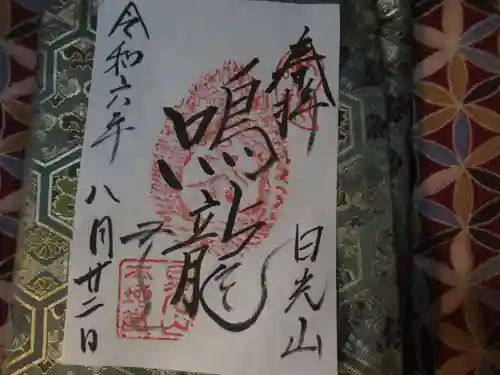 奉拝
日光山
鳴龍
令和六年 八月廿二日